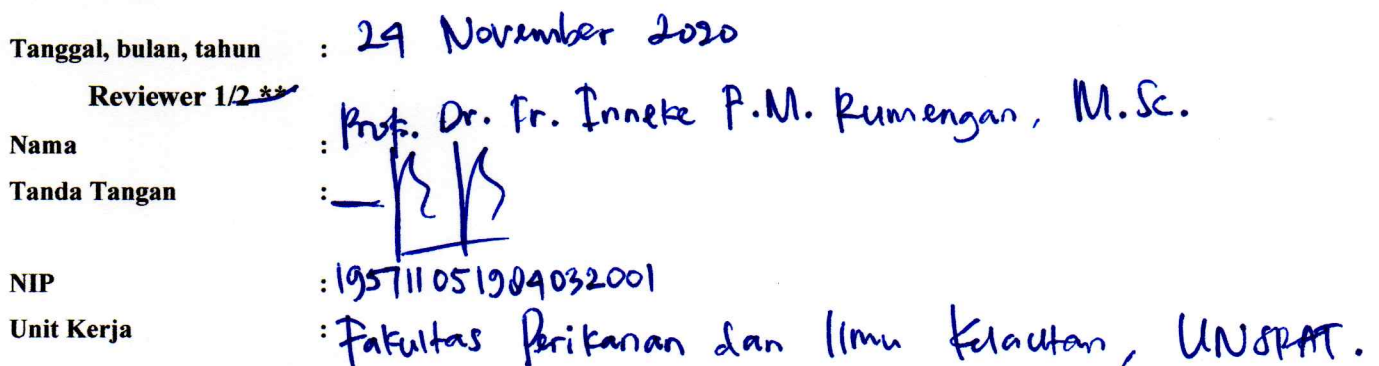 Tanggal, bulan, tahun : 24 November 2020
Reviewer 1/2 **
Nama : Prof. Dr. Ir. Inneke F.M. Rumengan, M.Sc.
Tanda Tangan :
NIP : 195711051984032001
Unit Kerja : Fakultas Perikanan dan Ilmu Kelautan, UNSRAT.